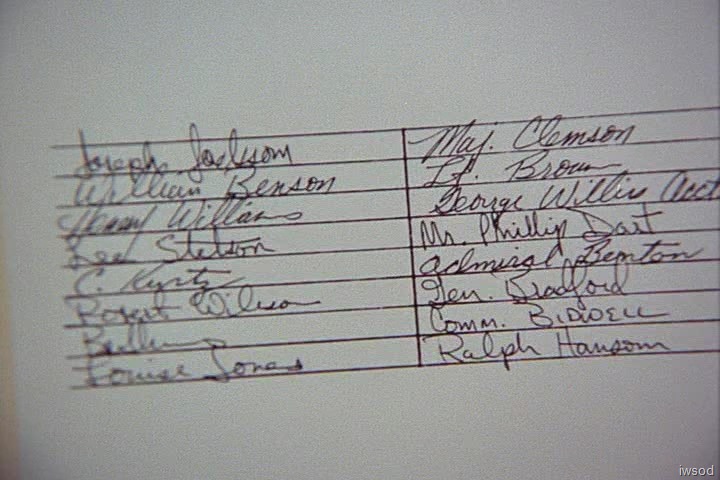 Joseph Jackson Maj. Clemson
William Benson Lt. Brown
Henry Williams George Willis Acct
Lee Stetson Mr. Phillip Dart
C. Kurtz Admiral Benton
Robert Wilson Gen. Bradford
Comm. BIDWELL
Louise Jones Ralph Hansom
iwsod